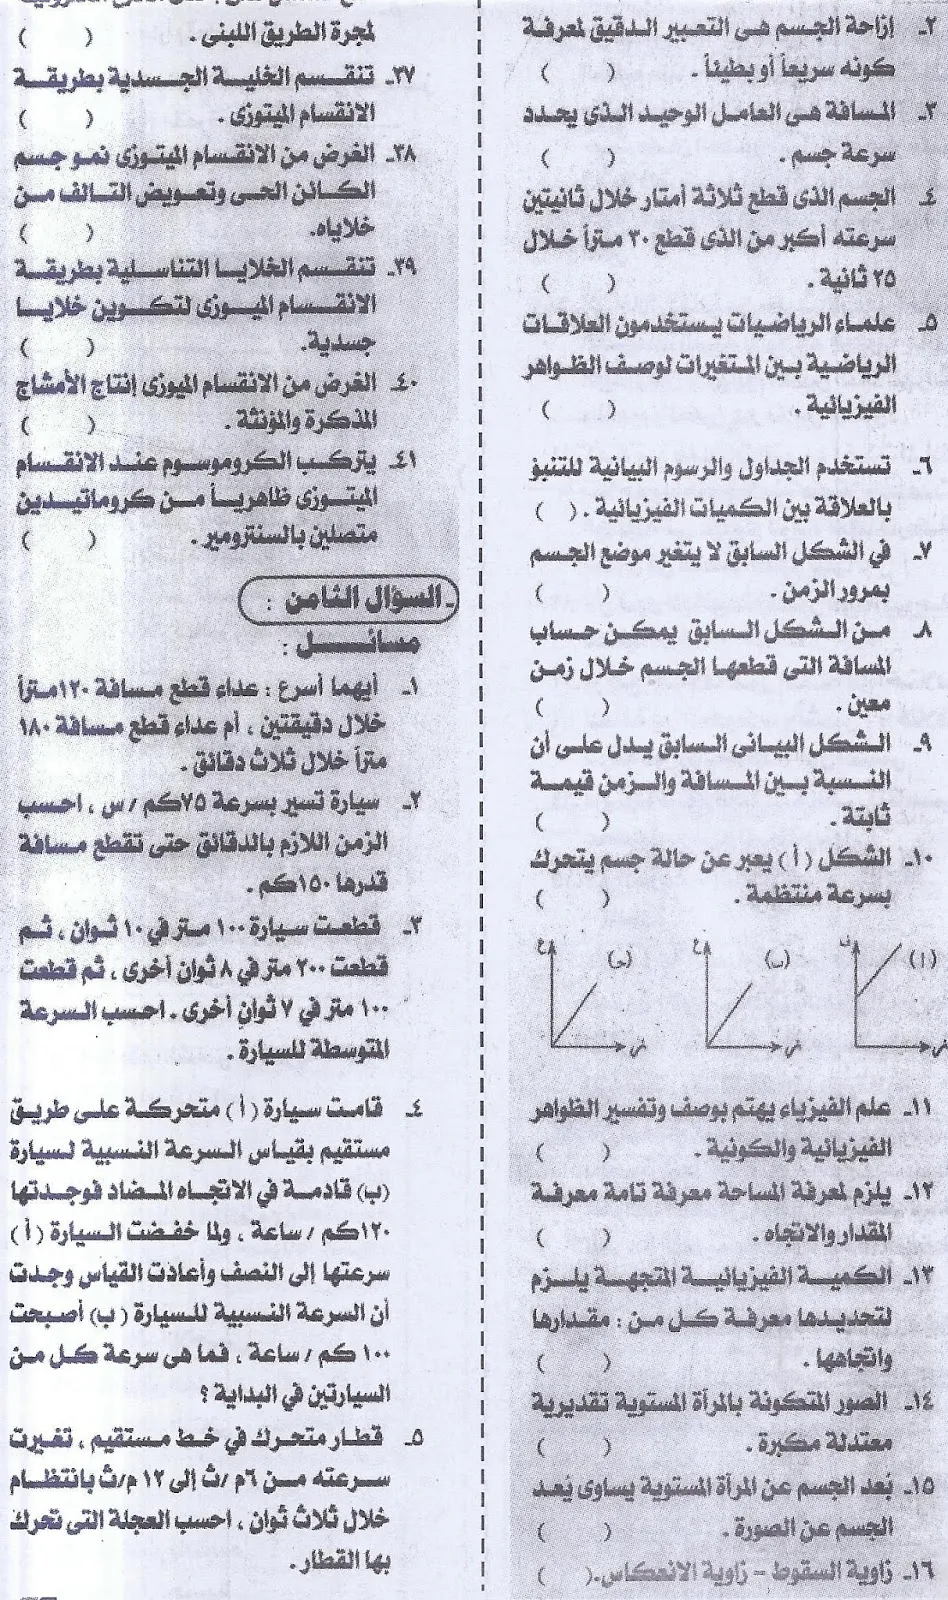 ٢ـ إزاحة الجسم هى التعبير الدقيق لمعرفة
كونه سريعاً أو بطيئاً . (     )
٣ـ المسافة هى العامل الوحيد الذى يحدد
سرعة جسم . (     )
٤ـ الجسم الذى قطع ثلاثة أمتار خلال ثانيتين
سرعته أكبر من الذى قطع ٣٠ متراً خلال
٢٥ ثانية . (     )
٥ـ علماء الرياضيات يستخدمون العلاقات
الرياضية بين المتغيرات لوصف الظواهر
الفيزيائية . (     )
٦ـ تستخدم الجداول والرسوم البيانية للتنبؤ
بالعلاقة بين الكميات الفيزيائية . (     )
٧ـ في الشكل السابق لا يتغير موضع الجسم
بمرور الزمن . (     )
٨ـ من الشكل السابق يمكن حساب
المسافة التى قطعها الجسم خلال زمن
معين . (     )
٩ـ الشكل البيانى السابق يدل على أن
النسبة بين المسافة والزمن قيمة
ثابتة . (     )
١٠ـ الشكل ( أ ) يعبر عن حالة جسم يتحرك
بسرعة منتظمة . (     )
ف ( أ ) ع (ب) ع (جـ)
ز ز ز
١١ـ علم الفيزياء يهتم بوصف وتفسير الظواهر
الفيزيائية والكونية . (     )
١٢ـ يلزم لمعرفة المساحة معرفة تامة معرفة
المقدار والاتجاه . (     )
١٣ـ الكمية الفيزيائية المتجهة يلزم
لتحديدها معرفة كل من : مقدارها
واتجاهها . (     )
١٤ـ الصور المتكونة بالمرآة المستوية تقديرية
معتدلة مكبرة . (     )
١٥ـ بُعد الجسم عن المرآة المستوية يساوى بُعد
الجسم عن الصورة . (     )
١٦ـ زاوية السقوط = زاوية الانعكاس . (     )
لمجرة الطريق اللبنى . (     )
٣٧ـ تنقسم الخلية الجسدية بطريقة
الانقسام الميتوزى . (     )
٣٨ـ الغرض من الانقسام الميتوزى نمو جسم
الكائن الحى وتعويض التالف من
خلاياه. (     )
٣٩ـ تنقسم الخلايا التناسلية بطريقة
الانقسام الميوزى لتكوين خلايا
جسدية. (     )
٤٠ـ الغرض من الانقسام الميوزى إنتاج الأمشاج
المذكرة والمؤنثة . (     )
٤١ـ يتركب الكروموسوم عند الانقسام
الميتوزى ظاهرياً من كروماتيدين
متصلين بالسنترومير . (     )
ـ السؤال الثامن :
مسائل :
١ـ أيهما أسرع : عداء قطع مسافة ١٢٠متراً
خلال دقيقتين ، أم عداء قطع مسافة ١٨٠
متراً خلال ثلاث دقائق .
٢ـ سيارة تسير بسرعة ٧٥كم / س ، احسب
الزمن اللازم بالدقائق حتى تقطع مسافة
قدرها ١٥٠كم .
٣ـ قطعت سيارة ١٠٠ متر في ١٠ ثوان ، ثم
قطعت ٢٠٠ متر في ٨ ثوان أخرى ، ثم قطعت
١٠٠ متر في ٧ ثوانٍ أخرى . احسب السرعة
المتوسطة للسيارة .
٤ـ قامت سيارة ( أ ) متحركة على طريق
مستقيم بقياس السرعة النسبية لسيارة
(ب) قادمة في الاتجاه المضاد فوجدتها
١٢٠كم / ساعة ، ولما خفضت السيارة ( أ )
سرعتها إلى النصف وأعادت القياس وجدت
أن السرعة النسبية للسيارة ( ب ) أصبحت
١٠٠ كم / ساعة ، فما هى سرعة كل من
السيارتين في البداية ؟
٥ـ قطار متحرك في خط مستقيم ، تغيرت
سرعته من ٦م /ث إلى ١٢ م/ث بانتظام
خلال ثلاث ثوان ، احسب العجلة التى تحرك
بها القطار .